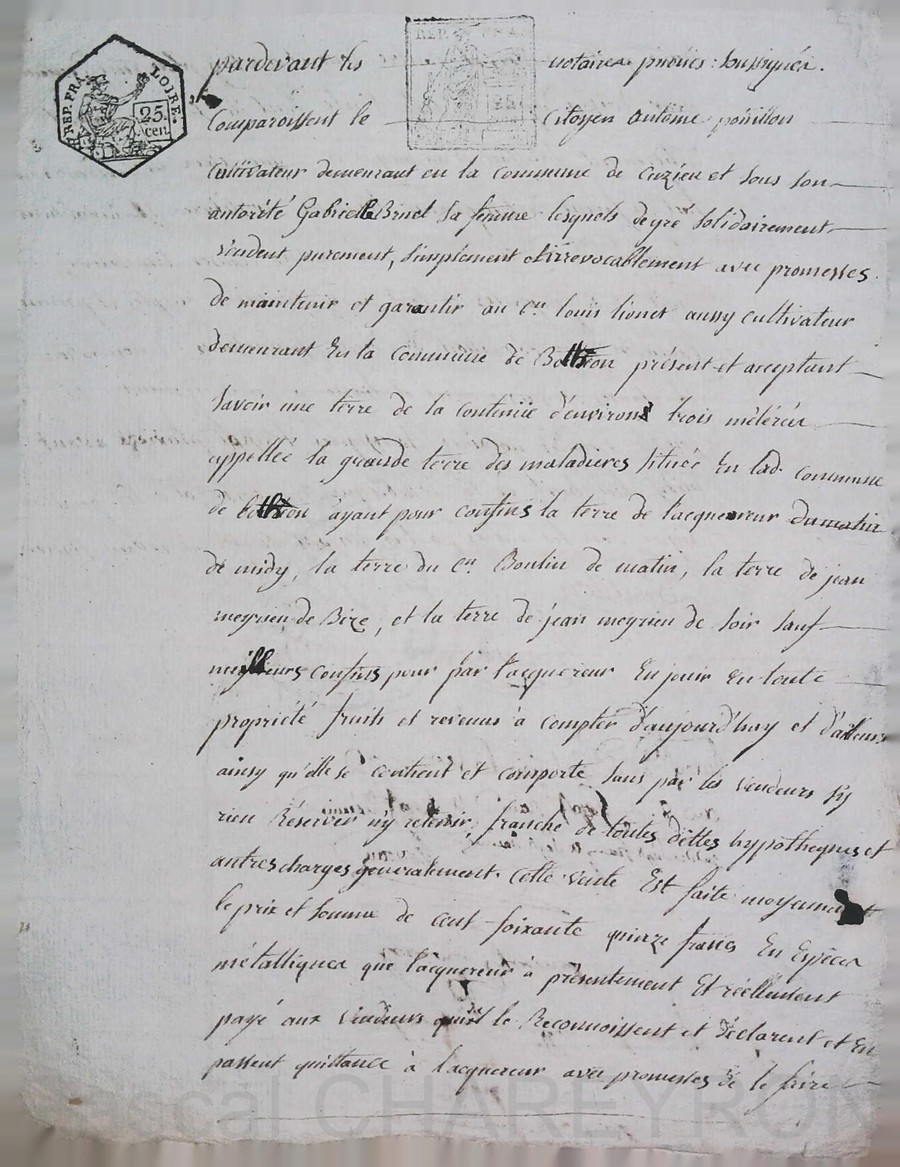 REP. FRA. LOIRE.
25. cen.
REP. FRA.
25
pardevant les notaires publics soussignés.
Comparoissent le Citoyen antoine pouillon
Cultivateur demeurant en la commune de Cuzieu et sous son
autorité Gabrielle Brunel sa femme lesquels de gré solidairement
vendent purement, simplement et irrevocablement avec promesses
de maintenir et garantir au Cen louis lionet aussy cultivateur
demeurant En la Commune de présent et acceptant
Savoir une terre de la contenüe d'environ trois méterées
appellée la grande terre des maladieres située En lad. commune
de ayant pour confins la terre de l'acquereur du matin
de midy, la terre du Cen. Boulin de matin, la terre de jean
meyrieu de Bize, et la terre de jean meyrieu de soir sauf
meilleurs confins pour par l'acquereur En jouir En toute
propriété fruits et revenus à compter d'aujourd'huy et d'ailleurs
ainsy qu'elle se contient et comporte sans par les vendeurs s'y
rien Réserver n'y retenir, franche de toutes dettes hypotheques et
autres charges generalement. cette vente Est faite moyennant
le prix et somme de cent soixante quinze francs En Espèces
métalliques que l'acquereur à présentement Et réellement
payé aux vendeurs le Reconnoissent et Déclarent et En
passent quittance à l'acquereur avec promesses de le faire
Pascal CHAREYRON